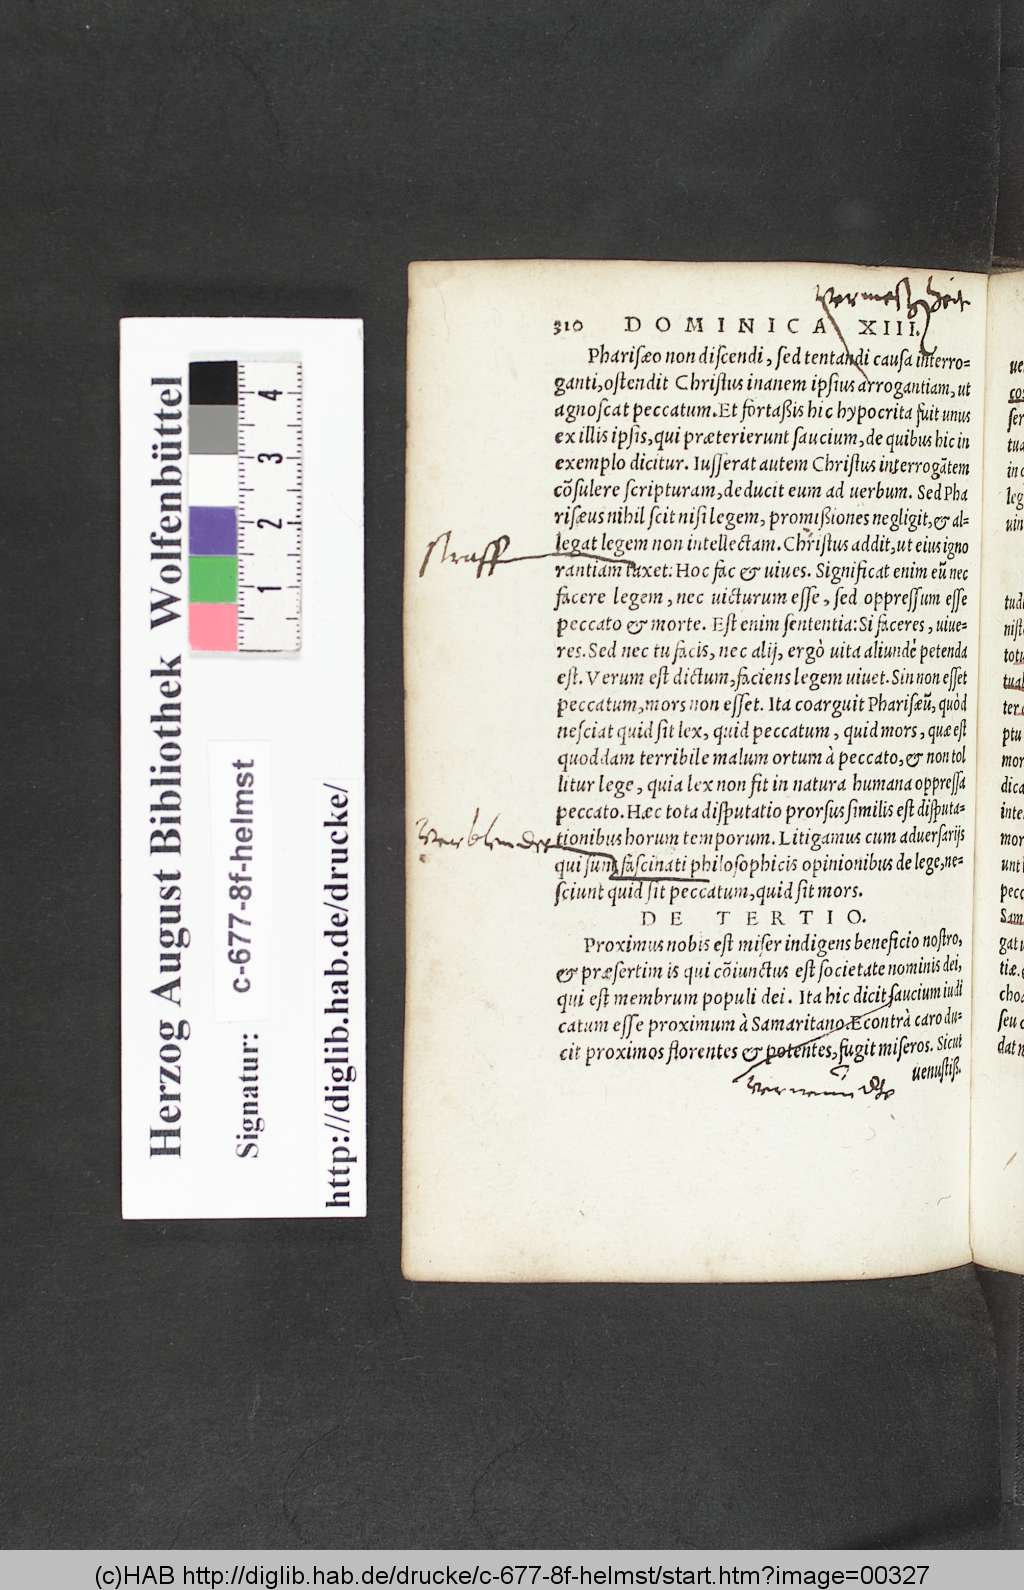 310 DOMINICA XIII.
Phariſæo non diſcendi, ſed tentandi cauſa interro-
ganti, oſtendit Chriſtus inanem ipſius arrogantiam, ut
agnoſcat peccatum. Et fortaßis hic hypocrita fuit unus
ex illis ipſis, qui præterierunt ſaucium, de quibus hic in
exemplo dicitur. Iuſſerat autem Chriſtus interrogãtem
cõſulere ſcripturam, deducit eum ad uerbum. Sed Pha
riſæus nihil ſcit niſi legem, promißiones negligit, & al-
legat legem non intellectam. Chriſtus addit, ut eius igno
rantiam taxet: Hoc fac & uiues. Significat enim eũ nec
facere legem, nec uicturum eſſe, ſed oppreſſum eſſe
peccato & morte. Eſt enim ſententia: Si faceres, uiue-
res. Sed nec tu facis, nec alij, ergò uita aliunde petenda
eſt. Verum eſt dictum, faciens legem uiuet. Sin non eſſet
peccatum, mors non eſſet. Ita coarguit Phariſæũ, quòd
neſciat quid ſit lex, quid peccatum, quid mors, quæ eſt
quoddam terribile malum ortum à peccato, & non tol
litur lege, quia lex non fit in natura humana oppreſſa
peccato. Hæc tota diſputatio prorſus ſimilis eſt diſputa-
tionibus horum temporum. Litigamus cum aduerſarijs
qui ſunt faſcinati philoſophicis opinionibus de lege, ne-
ſciunt quid ſit peccatum, quid ſit mors.
DE TERTIO.
Proximus nobis eſt miſer indigens beneficio noſtro,
& præſertim is qui cõiunctus eſt ſocietate nominis dei,
qui eſt membrum populi dei. Ita hic dicit ſaucium iudi
catum eſſe proximum à Samaritano. Econtrà caro du-
cit proximos florentes & potentes, fugit miſeros. Sicut
uenuſtiß.
straff
Verblendet
Herzog August Bibliothek Wolfenbüttel
Signatur: c-677-8f-helmst
http://diglib.hab.de/drucke/
1 2 3 4
(c)HAB http://diglib.hab.de/drucke/c-677-8f-helmst/start.htm?image=00327